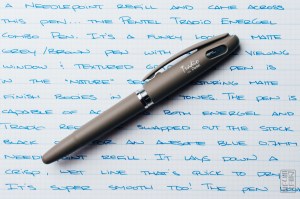 A NEEDLEPOINT REFILL AND CAME ACROSS
THIS PEN... THE PENTEL TRADIO ENERGEL
COMBO PEN. IT'S A FUNKY LOOKING MATTE
GREY/BROWN PEN WITH A VIEWING
WINDOW & TEXTURED
IN THE "NATURE" SE MATTE
FINISH BODIES IN TONES. THE PEN IS
CAPABLE OF AC BOTH ENERGEL AND
TRADIO REF SWAPPED OUT THE STOCK
BLACK FOR AN AWESOME BLUE 0.7MM
NEEDLEPOINT REFILL. IT LAYS DOWN A
CRISP, WET LINE THAT'S QUICK TO DRY
IT'S SUPER SMOOTH TOO! THE PEN